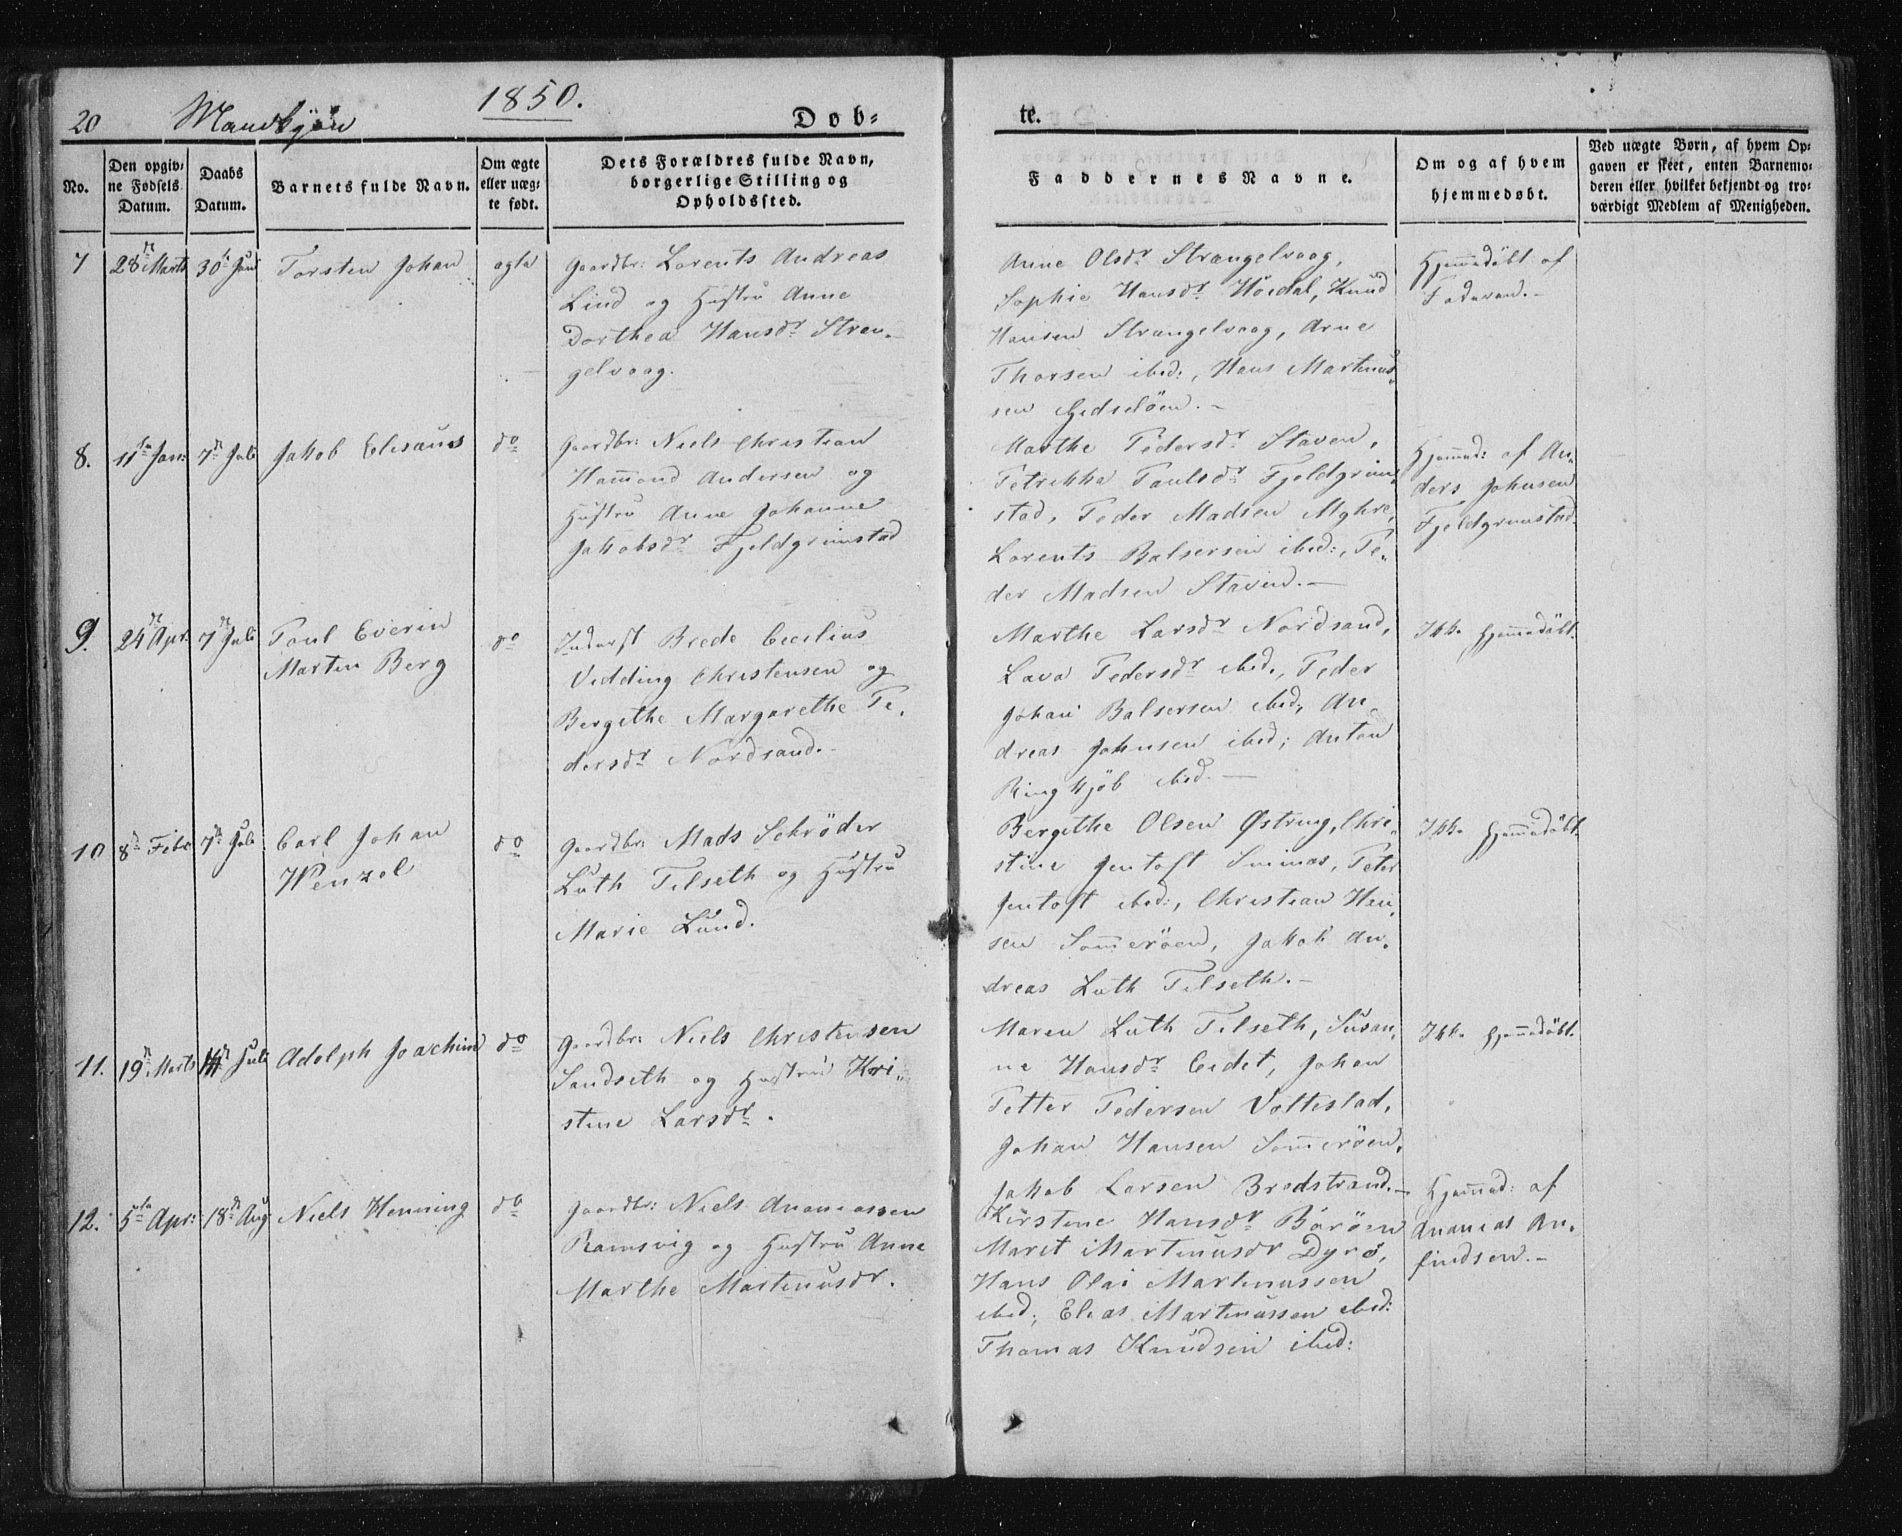 20 Mandkjön 1850. Døb-
te.
No.
Den opgiv-
ne Fødsels
Datum.
Daabs
Datum.
Barnets fulde Navn.
Om ægte
eller uæg-
te født.
Dets Forældres fulde Navn,
borgerlige Stilling og
Opholdssted.
Faddernes Navne.
Om og af hvem
hjemmedøbt.
Ved uægte Børn, af hvem Op-
gaven er skeet, enten Barnemo-
deren eller hvilket bekjendt og tro-
værdigt Medlem af Menigheden.
7 28de Marts 30te Juni Torsten Johan ægte
Gaardbr: Lorents Andreas
Lind og Hustru Anne
Dorthea Hansdr Stran-
gelvaag.
Anne Olsdr Strangelvaag,
Sophie Hansdr Hördal, Knud
Hansen Strangelvaag, Arne
Thorsen ibid:, Hans Martinus-
sen Gidselöen.-
Hjemmedöbt af
Faderen.-
8. 11te Jan: 7de Juli Jakob Elisæus do
Gaardbr: Niels Christian
Hammond Andersen og
Hustru Anne Johanne
Jakobsdr Fjeldgrimstad
Marthe Pedersdr Staven,
Petrikka Paulsdr Fjeldgrim-
stad, Peder Madsen Myhre,
Lorents Balsersen ibid:, Pe-
der Madsen Staven.-
Hjemmed: af An-
ders Johnsen
Fjeldgrimstad
9. 24de Apr. 7de Juli Poul Everin
Marten Berg
do
Inderst Brede Cecilius
Vedding Christensen og
Bergithe Margarethe Pe-
dersdr Nordsand.
Marthe Larsdr Nordsand,
Lava Pedersdr ibid., Peder
Johan Balsersen ibid, An-
dreas Johnsen ibid; Anton
Ringkjöb ibid.-
Ikke hjemmedöbt.
10 8de Febr 7de Juli Carl Johan
Wenzel
do
Gaardbr: Mads Schrøder
Luth Tilseth og Hustru
Marie Lund.
Bergithe Olsen Østring, Chri-
stine Jentoft Sminæs, Peter
Jentoft ibid:, Christian Han-
sen Sommeröen, Jakob An-
dreas Luth Tilseth.-
Ikke hjemmedöbt.
11. 19de Marts 14de Juli Adolph Joachim do
Gaardbr: Niels Christensen
Sandseth og Hustru Kri-
stine Larsdr.
Maren Luth Tilseth, Susan-
ne Hansdr Eidet, Johan
Petter Pedersen Vottestad,
Johan Hansen Sommeröen,
Jakob Larsen Bredstrand.-
Ikke hjemmedöbt.
12. 5te Apr: 18de Aug Niels Henning do
Gaardbr: Niels Ananiassen
Ramsvig og Hustru Anne
Marthe Martinusdr.
Kirstine Hansdr Böröen
Marit Martinusdr Dyrö,
Hans Olai Martinussen
ibid; Elias Martinussen ibid:
Thomas Knudsen ibid:
Hjemmed: af
Ananias An-
findsen.-